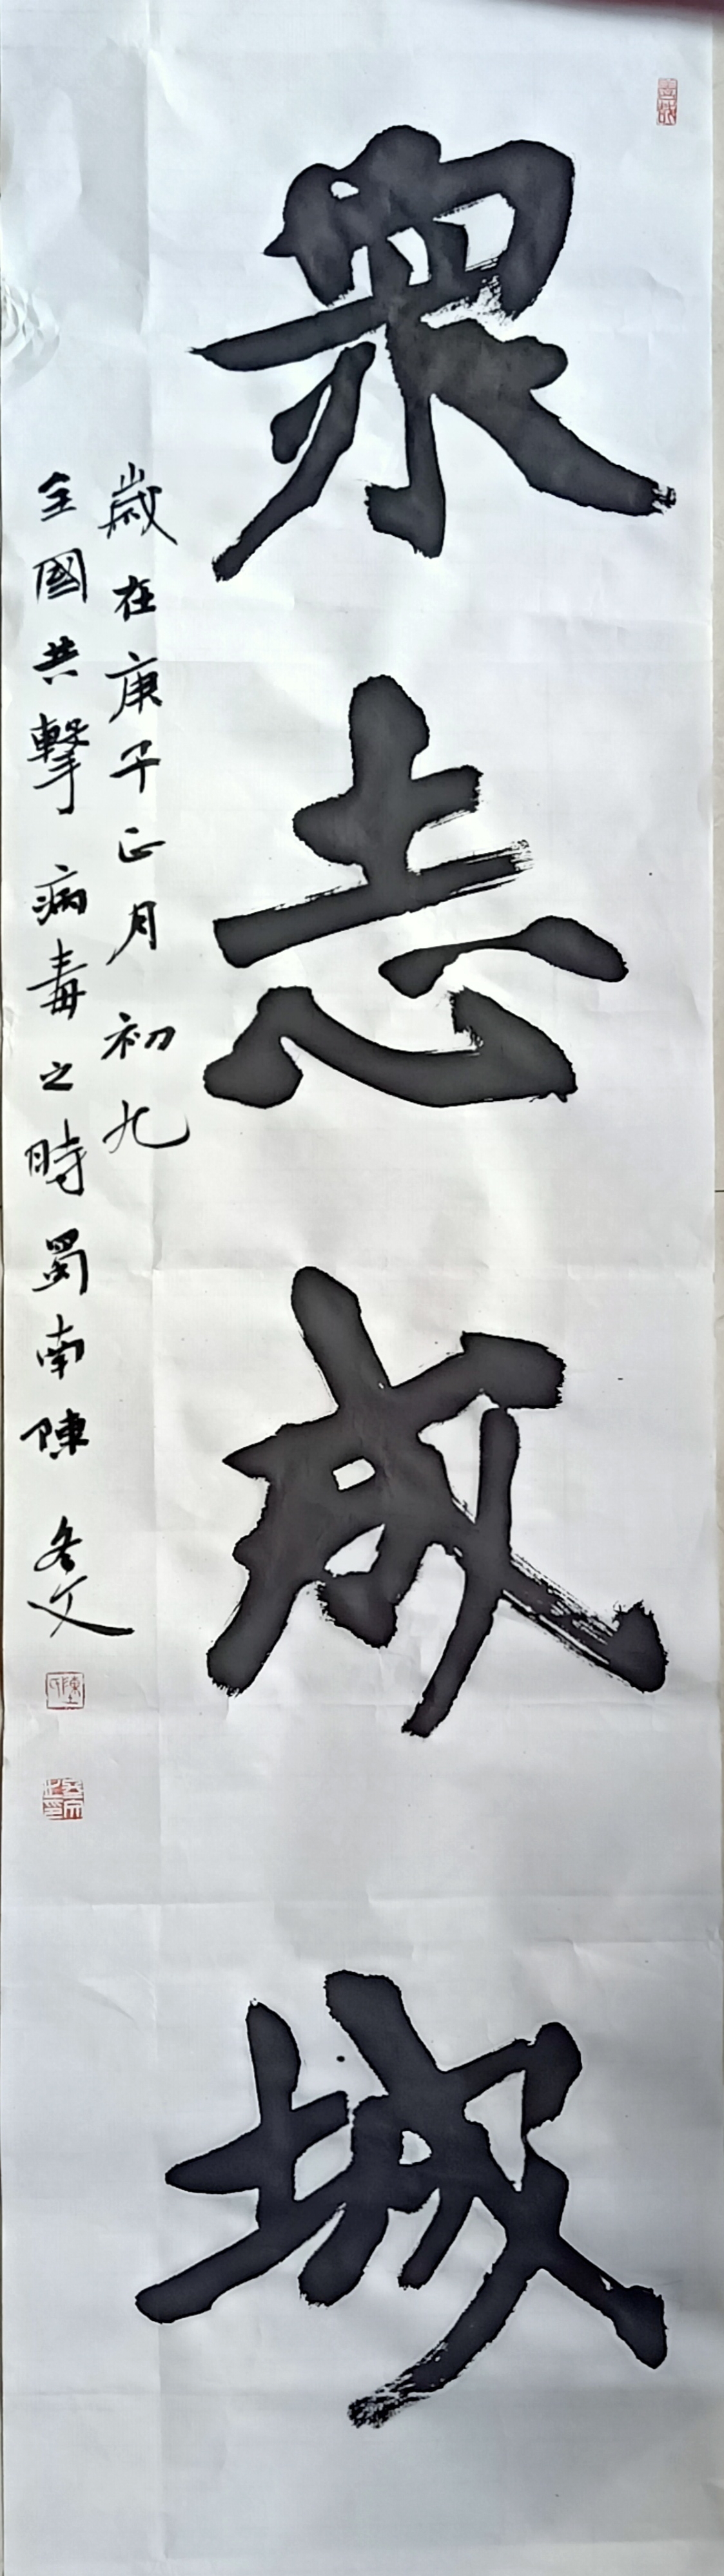 眾志成城
歲在庚子正月初九
全國共擊病毒之時蜀南陳文